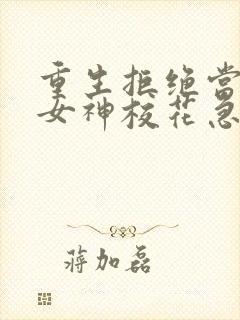 重生拒绝当
女神校花急
蒋加磊